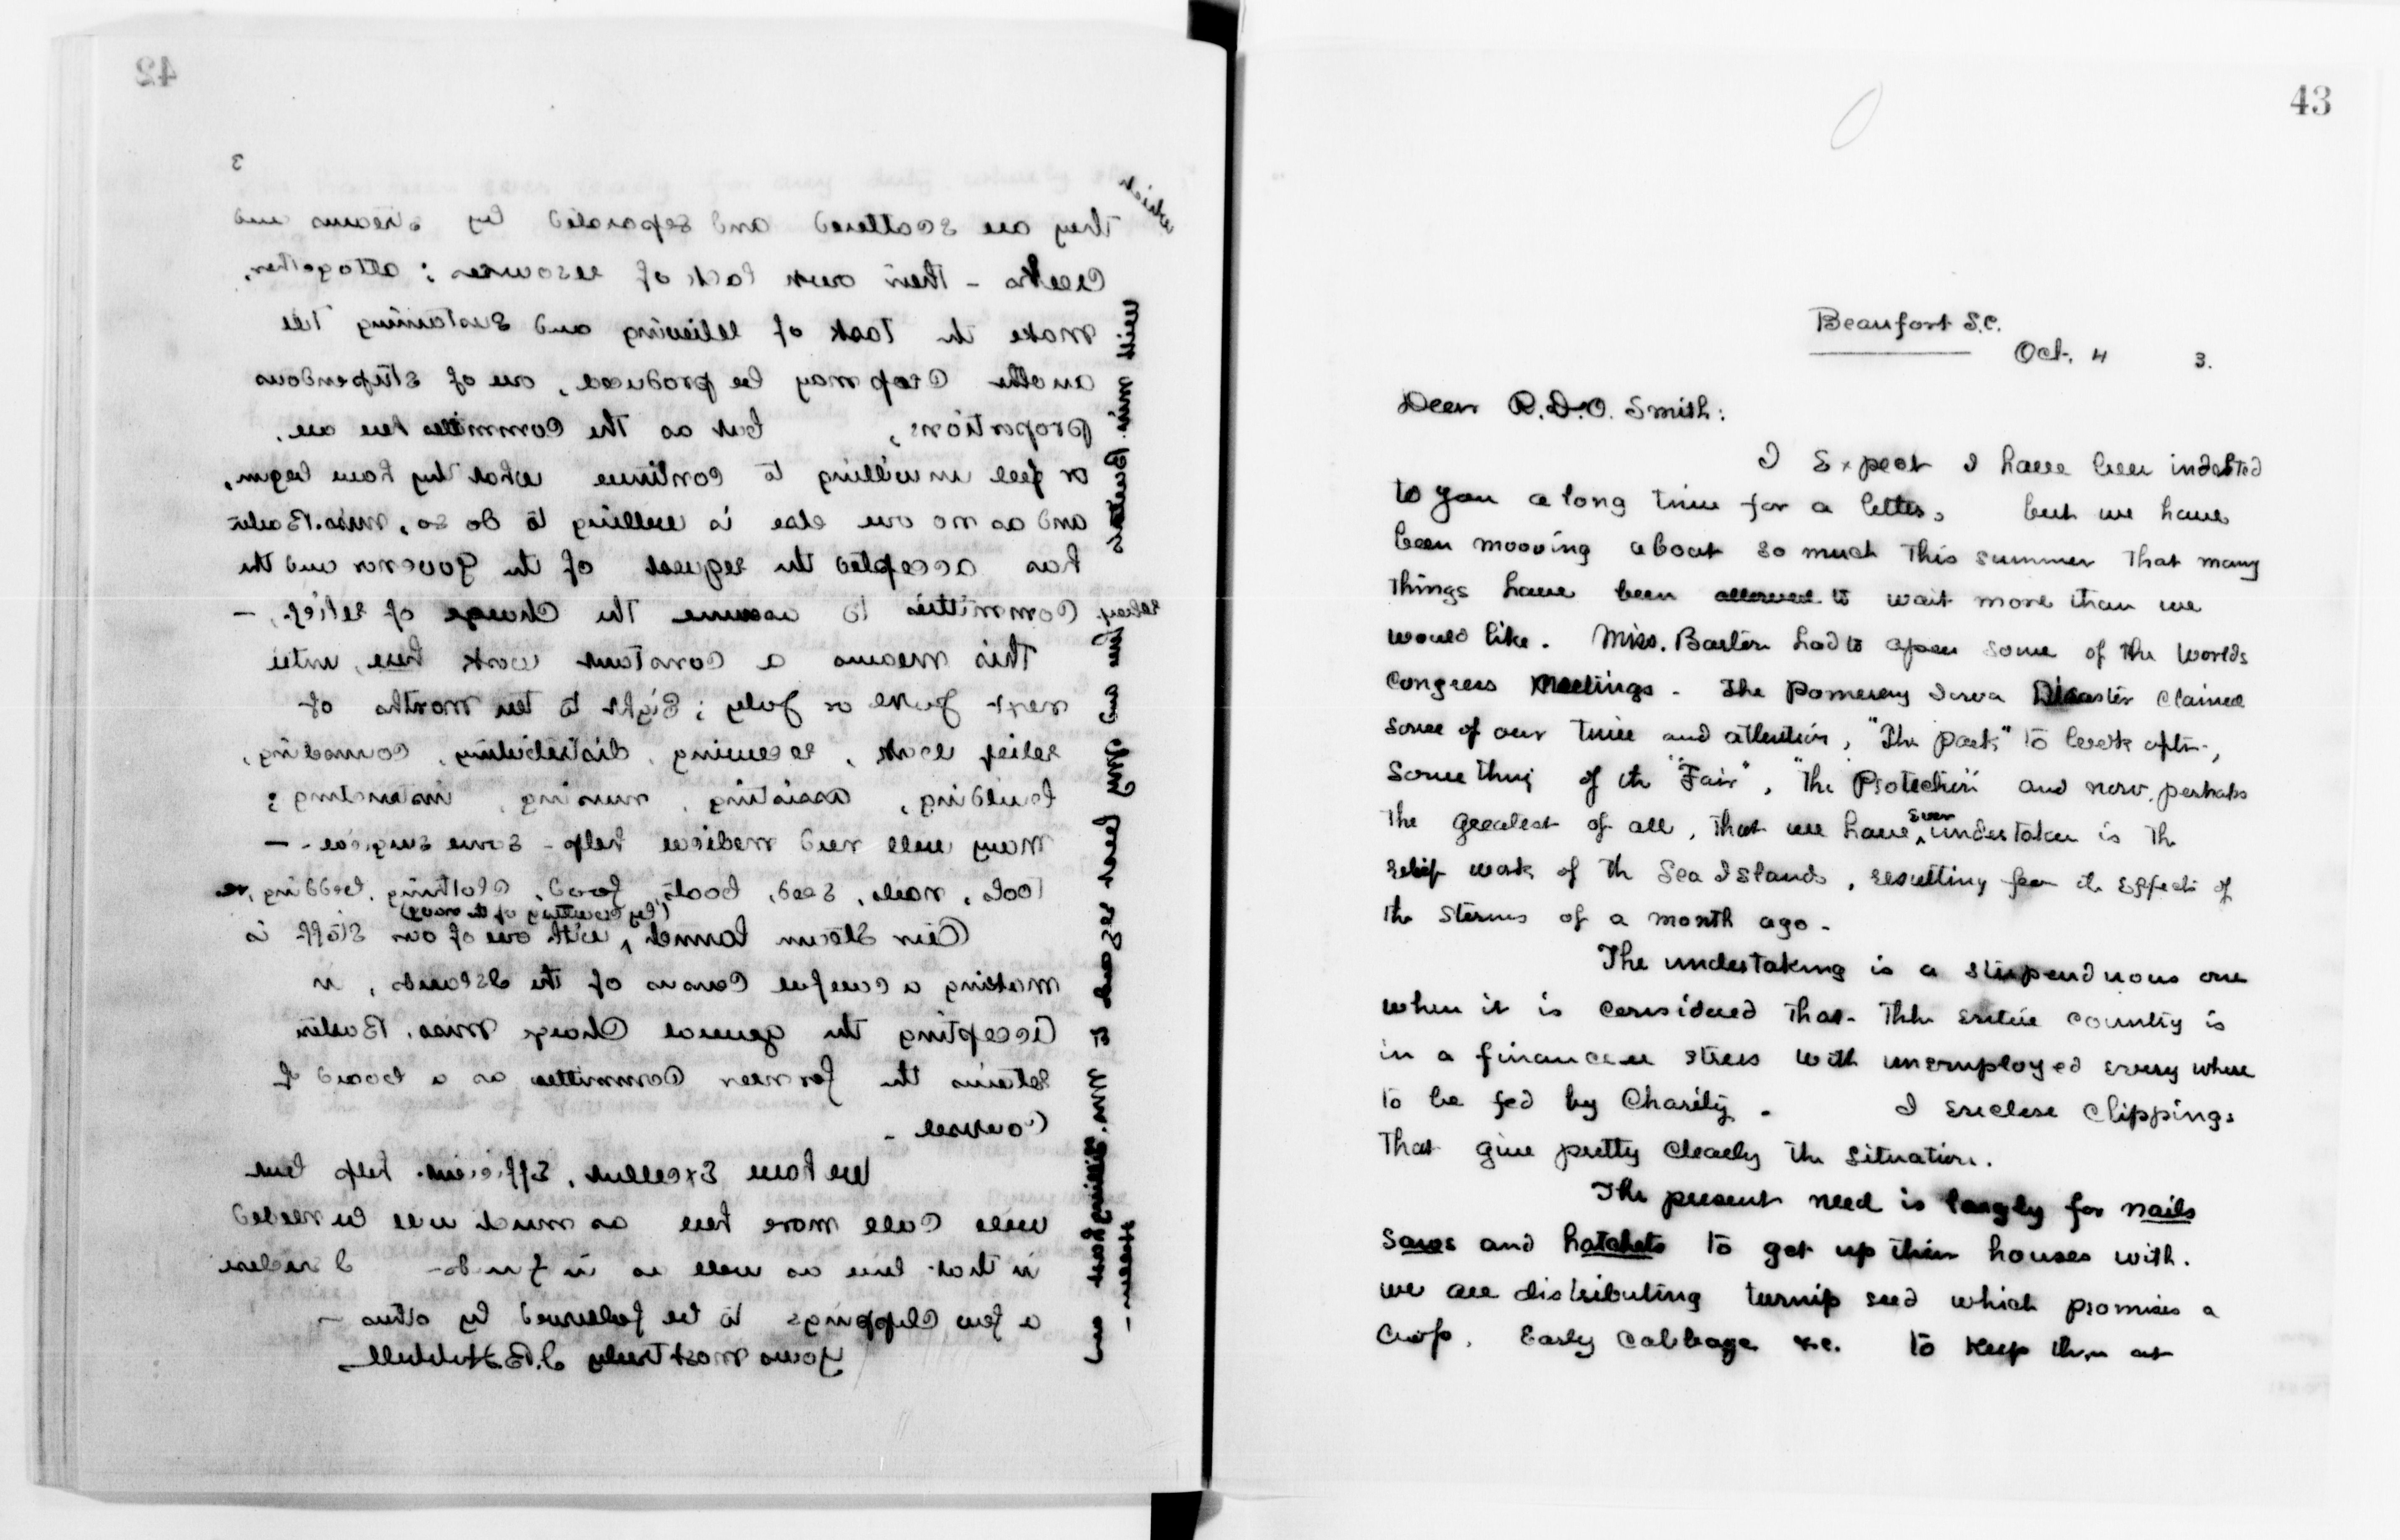 42
3
they are scattered and separated by streams and
Creeks - their own lack of resources; altogether,
make the task of relieving and sustaining till
another Crop may be produced, one of stupendous
proportions, but as the Committees here are,
or feel unwilling to continue what they have begun,
and as no one else is willing to do so, Miss. Barton
has accepted the request of the Governor and the
Committies to assume the Charge of relief. -
This means a constant work here, until
next June or July; Eight to ten months of
relief work, receiving, distributing, counseling,
building, assisting, nursing, instructing;
Many will need medical help - some surgical. -
Tools, nails, seed, boats, food, Clothing, bedding,
(by courtesy of the navy)
Our Steam launch, with one of our staff is
making a careful Census of the Islands, in
accepting the general Charge Miss. Barton
retains the former Committee as a board of
Counsel -
We have Excellent, Efficient help but
will call more here as much will be needed
in that line as well as in funds - I enclose
a few Clippings to be followed by others -
yours most truly J.B. Hubbell
which
with miss Barton's
and my best regards to Mrs.
43
Beaufort S.C.
Oct. 4 3.
Dear R.D.O. Smith:
I Expect I have been indebted
to you a long time for a letter, but we have
been mooving about so much this summer that many
things have been allowed to wait more than we
would like. Miss. Barton had to open some of the Worlds
Congress Meetings - The Pomeroy Iowa Disaster claimed
some of our time and attention, "The park" to look after,
Something of the "Fair", "The Protection" and now, perhaps
the greatest of all, that we have undertaken is the
ever
relief work of the Sea Islands, resulting from the Effects of
the storms of a month ago -
The undertaking is a stupenduous one
when it is considered that the Entire County is
in a financial stress with unemployed every where
to be fed by Charity - I enclose Clippings
that give pretty clearly the situation.
The present need is largly for nails
saws and hatchets to get up their houses with.
we are distributing turnip seed which promises a
Crop, Early Cabbage &c. to keep them at